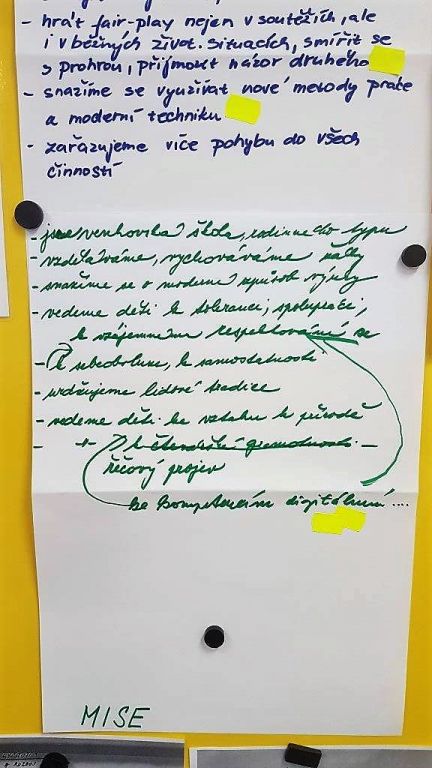 - hrát fair-play nejen v soutěžích, ale
i v běžných život. situacích, smířit se
s prohrou, přijmout názor druhého
- snažíme se využívat nové metody práce
a moderní techniku
- zařazujeme více pohybu do všech
činností
- jsme venkovská škola, rodinného typu
- vzděláváme, vychováváme žáky
- snažíme se o moderní způsob výuky
- vedeme děti k toleranci, spolupráci,
k vzájemnému respektování se
- k sebeobsluze, k samostatnosti
- udržujeme lidové tradice
- vedeme děti ke vztahu k přírodě
- + k čtenářské gramotnosti -
řečový projev
ke kompetencím digitálním ....
MISE